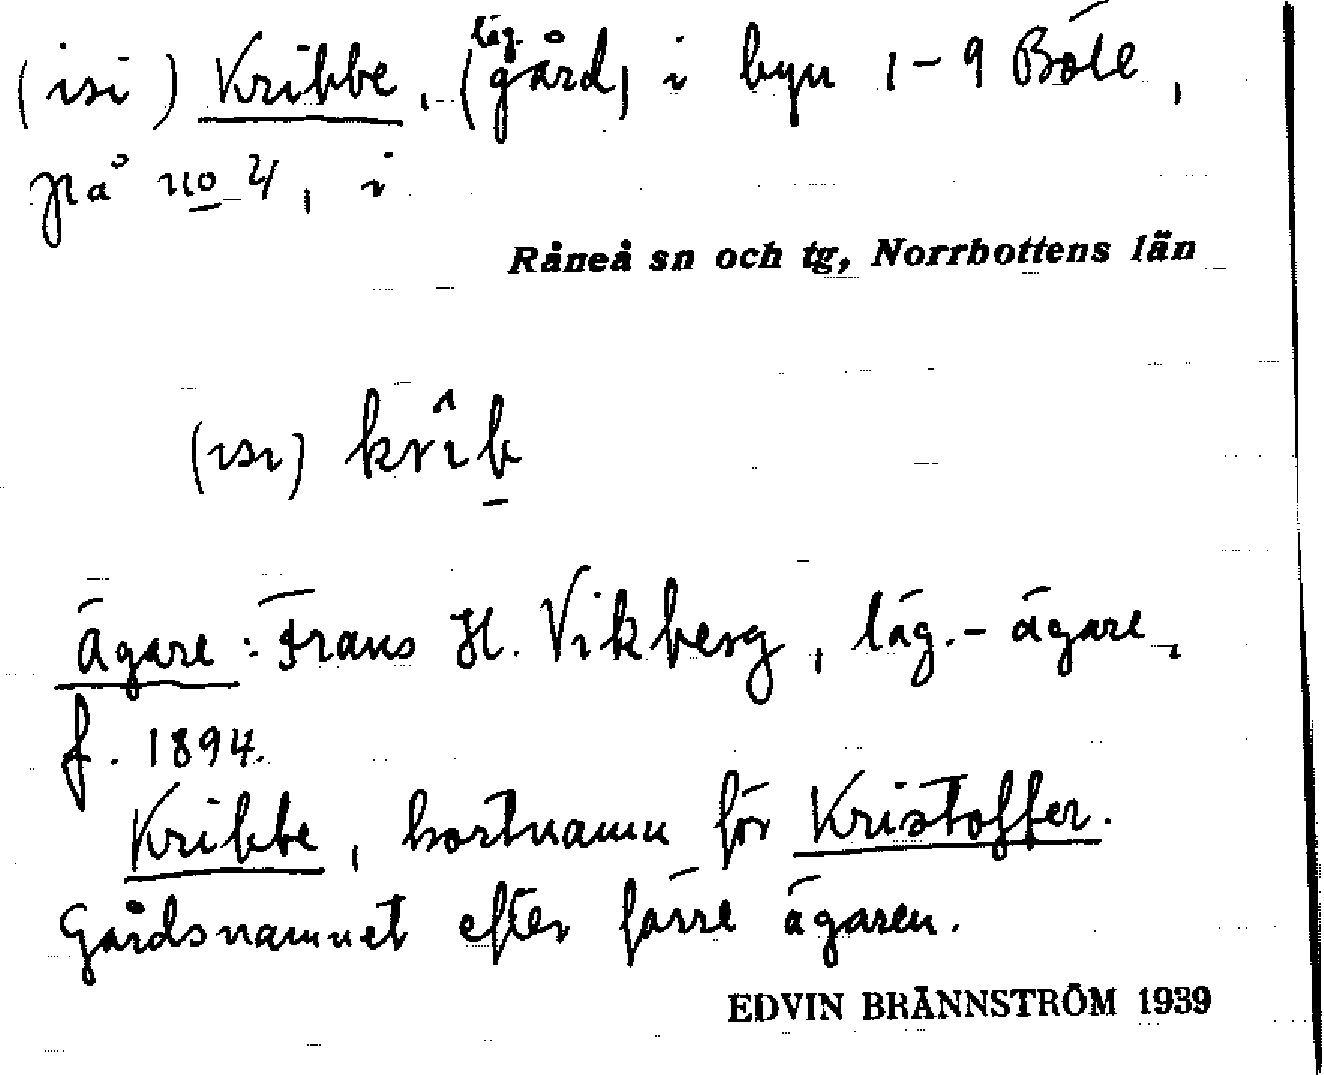 (isi) Kribbe, (läg.gård) i byn 1-9 Böle,
på no 4, i
Råneå sn och tg, Norrbottens län
(isi) krîb
Ägare: Frans H. Vikberg, läg.-ägare,
f. 1894.
Kribbe, kortnamn för Kristoffer.
Gårdsnamnet efter förre ägaren.
EDVIN BRÄNNSTRÖM 1939